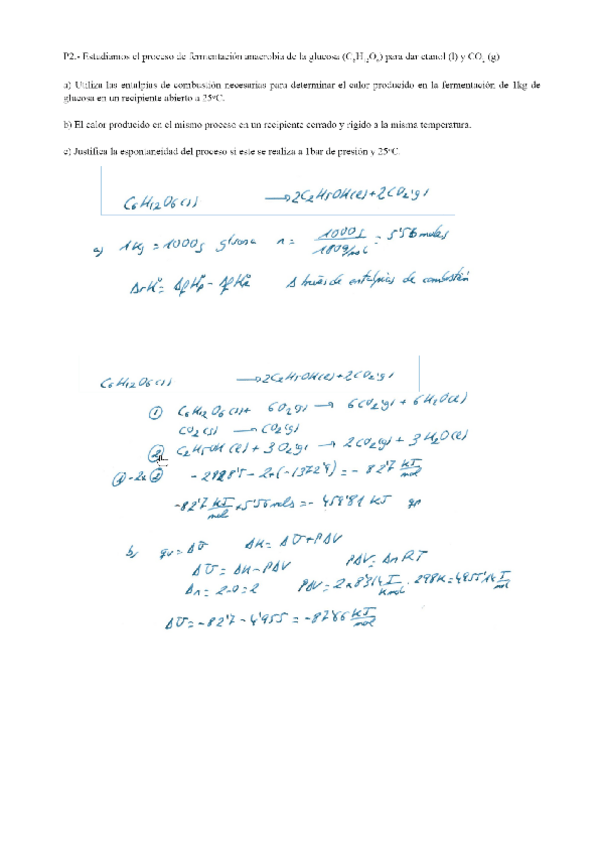 P2.- Estudiamos el proceso de fermentación anaerobia de la glucosa (C₆H₁₂O₆) para dar etanol (l) y CO₂ (g)
a) Utiliza las entalpías de combustión necesarias para determinar el calor producido en la fermentación de 1kg de
glucosa en un recipiente abierto a 25ºC.
b) El calor producido en el mismo proceso en un recipiente cerrado y rígido a la misma temperatura.
c) Justifica la espontaneidad del proceso si este se realiza a 1bar de presión y 25ºC.
C6H12O6(s) → 2C2H5OH(l) + 2CO2(g)
a) 1Kg = 1000g glucosa n = 1000g / 180g/mol = 5'56 moles
ΔrHº = ΔfHºp - ΔfHºR A través de entalpías de combustión
C6H12O6(s) → 2C2H5OH(l) + 2CO2(g)
① C6H12O6(s) + 6O2(g) → 6CO2(g) + 6H2O(l)
CO2(s) → CO2(g)
② C2H5OH(l) + 3O2(g) → 2CO2(g) + 3H2O(l)
①-2x② = -82'7 KJ/mol
-82'7 KJ/mol x 5'56 mols = -459'81 KJ qp
b) qv = ΔU ΔH = ΔU + PΔV
ΔU = ΔH - PΔV PΔV = ΔnRT
Δn = 2-0 = 2 PΔV = 2 x 8'314 J/Kmol · 298K = 4955'14 J/mol
ΔU = -82'7 - 4'955 = -87'66 KJ/mol